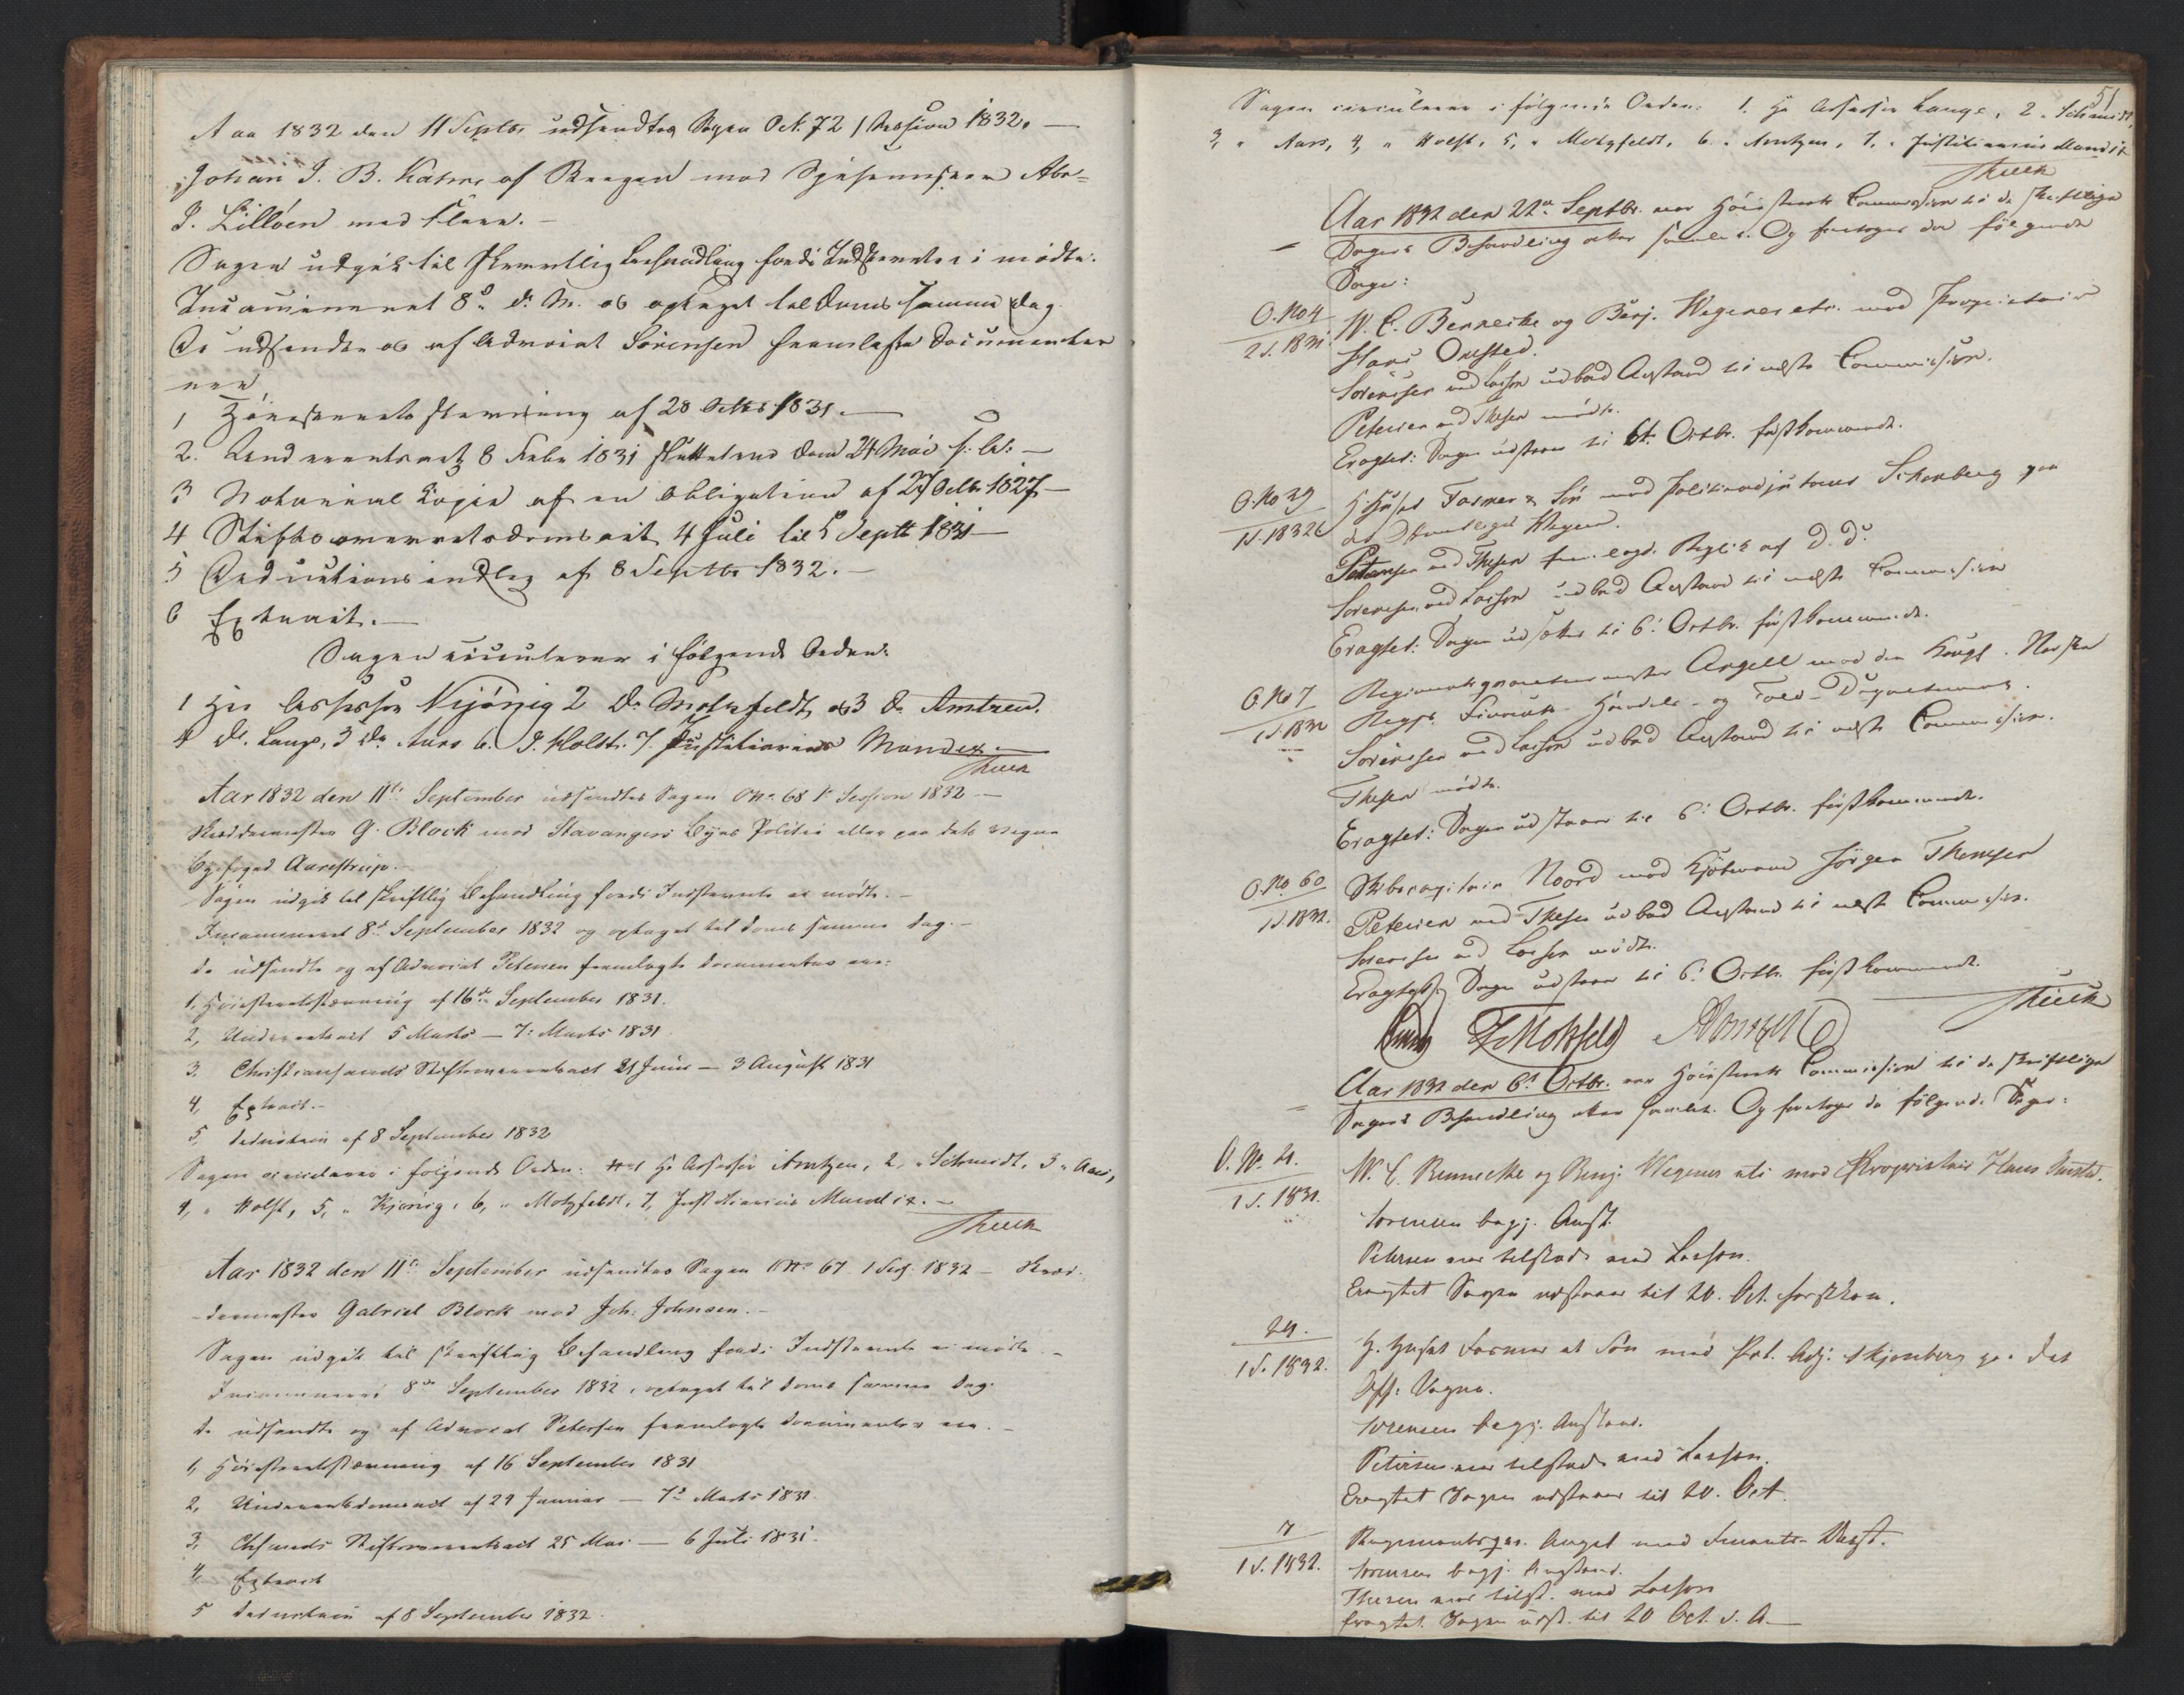 Aar 1832 den 11 Septbr. udsendtes Sagen O.N. 72 1 Session 1832. —
Johan J. B. Kahrs af Bergen mod
J. Lilløen med Flere. —
Sagen udgik til skrivtlig Behandling fordi Indstevnte ei mødte.
Incamineret 8de d. M. og optaget til Doms samme Dag.
De udsendte og af Advocat Sørensen fremlagte Documenter
ere
1 Høiesteretsstevning af 28 1831. —
2. Underretsact 8 Febr 1831 sluttet ved Dom 24 Mai s. A. —
3 Notarial Copie af en Obligation af 27 Octbr 1827 —
4 Stiftsoverretsdomsact 4 Juli til 5 Septbr 1831 —
5 Deductionsindlæg af 8 Septbr 1832. —
6 Extract. —
Sagen circulerer i følgende Orden:
1 Hr Assessor Kjønig 2 Dr Motzfeldt, og 3 Dr Arntzen.
4 Dr. Lange, 5 Dr Aars 6. D. Holst. 7. Justitiarius Mandix. —
Aar 1832 den 11te September udsendtes Sagen O No. 68 1 Session 1832 —
Skræddermester G. Block mod Stavangers Byes Politie eller paa dets Vegne
Byefoged Aarestrup. —
Sagen udgik til skriftlig Behandling fordi Indstevnte ei mødte. —
Incamineret 8de September 1832 og optaget til Doms samme Dag. —
De udsendte og af Advocat Petersen fremlagte Documenter ere:
1. Høiesteretsstævning af 16de September 1831.
2, Underretsact 5 Marts — 7: Marts 1831
3. Christiansands Stiftsoverretsact 21 Juni — 3 August 1831
4, Extract. —
5, Deduction af 8 September 1832
Sagen circulerer i følgende Orden: 1 Hr Assessor Arntzen, 2, " Schmidt, 3 " Aars,
4, " Holst, 5, " Kjønig, 6, " Motzfeldt, 7, Justitiarius Mandix. —
Aar 1832 den 11te September udsendtes Sagen O No 67 1 Ses: 1832 — Skræd-
-dermester Gabriel Block mod Joh: Johnsen. —
Sagen udgik til skriftlig Behandling fordi Indstevnte ei mødte. —
Incamineret 8de September 1832, optaget til Doms samme Dag.
De udsendte og af Advocat Petersen fremlagte Documenter ere. —
1, Høiesteretsstævning af 16 September 1831
2, Underretsdomsact af 29 Januar — 7de Marts 1831.
3, Stiftsoverretsact 25 Mai — 6 Juli 1831.
4, Extract
5 Deduction af 8 September 1832.
51
Sagen circulerer i følgende Orden: 1. Hr Assessor Lange, 2 " Schmidt,
3, " Aars, 4, " Holst, 5, " Motzfeldt, 6. " Arntzen, 7, " Justitiarius Mandix
Aar 1832 den 22de Septbr. var Høiesterets Commission til de skriftlige
Sagers Behandling atter samlet. Og foretoges da følgende
Sager:
O. No 4
2 S. 1831.
W. C. Bennecke og Benj. Wegener etc. mod Proprietair
Hans Onsted.
Sørensen ved Lasson udbad Anstand til næste Commission.
Petersen ved Thesen mødte.
Eragtet: Sagen udstaar til 6te Octbr. førstkommende.
O. No 29
1 S. 1832
H. Huset Fasmer & Søn mod Politieadjutant Schonberg paa
det Offentliges Vegne.
Petersen ved Thesen fremlagde Replik af D. D.
Sørensen ved Lasson udbad Anstand til næste Commission
Eragtet: Sagen udsættes til 6: Octbr. førstkommende.
O. No 7
1 S. 1832
Regimentsqvarteermester Angell mod den Kongl. Norske
Regjs Finants- Handels- og Told-Departement.
Sørensen ved Lasson udbad Anstand til næste Commission.
Thesen mødte.
Eragtet: Sagen udstaaer til 6: Octbr. førstkommende.
O. No. 60
1 S. 1832.
Skibscapitain Noord mod Kjøbmand Jørgen Thomsen
Petersen ved Thesen udbad Anstand til næste Commission.
Sørensen ved Lasson mødte.
Eragtet: Sagen udstaaer til 6: Octbr. førstkommende.
Motzfeldt Arntzen
Aar 1832 den 6te Octbr. var Høiesterets Commission til de skriftlige
Sagers Behandling atter samlet. Og foretoges da følgende Sager:
O. No. 4.
2 S. 1831.
W. C. Bennecke og Benj: Wegener etc mod Proprietair Hans Onsted.
Sørensen begj. Anst.
Petersen var tilstede ved Lasson.
Eragtet Sagen udstaaer til 20. Oct. førstkom.
29.
1 S. 1832.
H. Huset Fasmer et Søn mod Pol. Adj: Skjonberg paa det
Off: Vegne.
Sørensen begj. Anstand.
Petersen var tilstede ved Lasson.
Eragtet Sagen udstaaer til 20. Oct.
7
1 S. 1832.
Regimentsqvm. Angel mod Finants-Dept.
Sørensen begj. Anstand.
Thesen var tilst. ved Lasson
Eragtet. Sagen udst. til 20 Oct. d. A. —